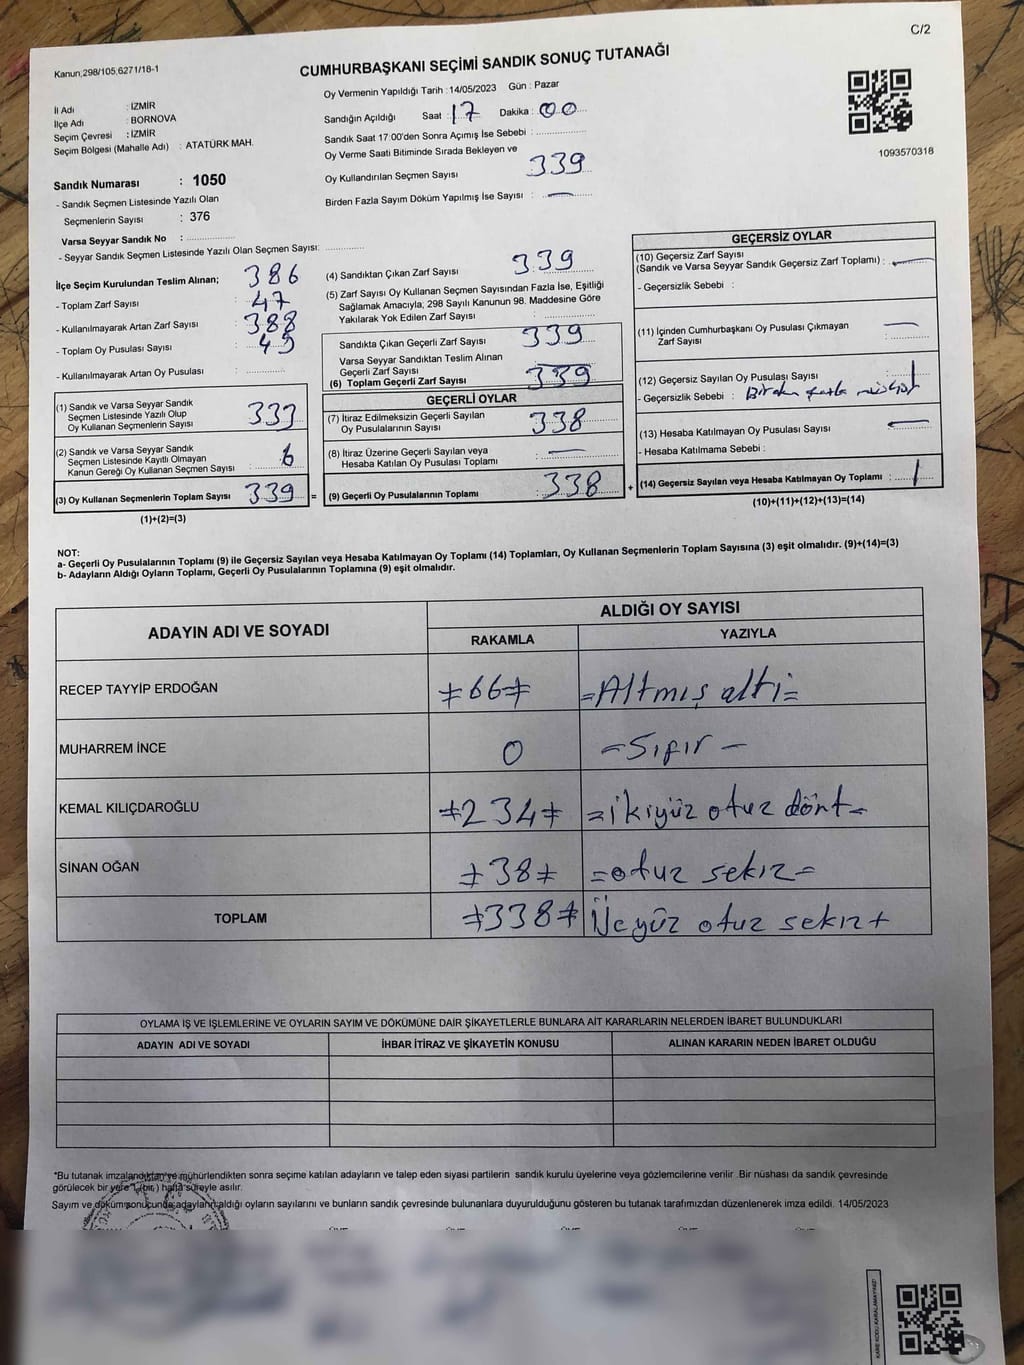 C/2
Kanun,298/105,6271/18-1
CUMHURBAŞKANI SEÇİMİ SANDIK SONUÇ TUTANAĞI
İl Adı : İZMİR
İlçe Adı : BORNOVA
Seçim Çevresi : İZMİR
Seçim Bölgesi (Mahalle Adı) : ATATÜRK MAH.
Oy Vermenin Yapıldığı Tarih :14/05/2023 Gün : Pazar
Sandığın Açıldığı Saat : 17 Dakika : 00
Sandık Saat 17:00'den Sonra Açımış İse Sebebi :
Oy Verme Saati Bitiminde Sırada Bekleyen ve
Oy Kullandırılan Seçmen Sayısı 339
Birden Fazla Sayım Döküm Yapılmış İse Sayısı : —
1093570318
Sandık Numarası : 1050
- Sandık Seçmen Listesinde Yazılı Olan
Seçmenlerin Sayısı : 376
Varsa Seyyar Sandık No :
- Seyyar Sandık Seçmen Listesinde Yazılı Olan Seçmen Sayısı:
İlçe Seçim Kurulundan Teslim Alınan;
- Toplam Zarf Sayısı : 386
- Kullanılmayarak Artan Zarf Sayısı : 47
- Toplam Oy Pusulası Sayısı : 388
- Kullanılmayarak Artan Oy Pusulası : 49
(1) Sandık ve Varsa Seyyar Sandık
Seçmen Listesinde Yazılı Olup
Oy Kullanan Seçmenlerin Sayısı : 333
(2) Sandık ve Varsa Seyyar Sandık
Seçmen Listesinde Kayıtlı Olmayan
Kanun Gereği Oy Kullanan Seçmen Sayısı : 6
(3) Oy Kullanan Seçmenlerin Toplam Sayısı : 339 =
(1)+(2)=(3)
(4) Sandıktan Çıkan Zarf Sayısı : 339
(5) Zarf Sayısı Oy Kullanan Seçmen Sayısından Fazla İse, Eşitliği
Sağlamak Amacıyla; 298 Sayılı Kanunun 98. Maddesine Göre
Yakılarak Yok Edilen Zarf Sayısı :
Sandıkta Çıkan Geçerli Zarf Sayısı : 339
Varsa Seyyar Sandıktan Teslim Alınan
Geçerli Zarf Sayısı : —
(6) Toplam Geçerli Zarf Sayısı : 339
GEÇERLİ OYLAR
(7) İtiraz Edilmeksizin Geçerli Sayılan
Oy Pusulalarının Sayısı : 338
(8) İtiraz Üzerine Geçerli Sayılan veya
Hesaba Katılan Oy Pusulası Toplamı : —
(9) Geçerli Oy Pusulalarının Toplamı : 338 +
GEÇERSİZ OYLAR
(10) Geçersiz Zarf Sayısı
(Sandık ve Varsa Seyyar Sandık Geçersiz Zarf Toplamı) : —
- Geçersizlik Sebebi :
(11) İçinden Cumhurbaşkanı Oy Pusulası Çıkmayan
Zarf Sayısı : —
(12) Geçersiz Sayılan Oy Pusulası Sayısı : 1
- Geçersizlik Sebebi : Birden fazla
(13) Hesaba Katılmayan Oy Pusulası Sayısı : —
- Hesaba Katılmama Sebebi :
(14) Geçersiz Sayılan veya Hesaba Katılmayan Oy Toplamı : 1
(10)+(11)+(12)+(13)=(14)
NOT:
a- Geçerli Oy Pusulalarının Toplamı (9) ile Geçersiz Sayılan veya Hesaba Katılmayan Oy Toplamı (14) Toplamları, Oy Kullanan Seçmenlerin Toplam Sayısına (3) eşit olmalıdır. (9)+(14)=(3)
b- Adayların Aldığı Oyların Toplamı, Geçerli Oy Pusulalarının Toplamına (9) eşit olmalıdır.
ADAYIN ADI VE SOYADI
ALDIĞI OY SAYISI
RAKAMLA YAZIYLA
RECEP TAYYİP ERDOĞAN ≠66≠ =Altmış altı=
MUHARREM İNCE 0 -Sıfır-
KEMAL KILIÇDAROĞLU ≠234≠ =ikiyüz otuz dört=
SİNAN OĞAN ≠38≠ =otuz sekiz=
TOPLAM ≠338≠ Üçyüz otuz sekiz+
OYLAMA İŞ VE İŞLEMLERİNE VE OYLARIN SAYIM VE DÖKÜMÜNE DAİR ŞİKAYETLERLE BUNLARA AİT KARARLARIN NELERDEN İBARET BULUNDUKLARI
ADAYIN ADI VE SOYADI İHBAR İTİRAZ VE ŞİKAYETİN KONUSU ALINAN KARARIN NEDEN İBARET OLDUĞU
*Bu tutanak imzalandıktan ve mühürlendikten sonra seçime katılan adayların ve talep eden siyasi partilerin sandık kurulu üyelerine veya gözlemcilerine verilir .Bir nüshası da sandık çevresinde
görülecek bir yere 1 (bir) hafta süreyle asılır.
Sayım ve döküm sonucunda adayların aldığı oyların sayılarını ve bunların sandık çevresinde bulunanlara duyurulduğunu gösteren bu tutanak tarafımızdan düzenlenerek imza edildi. 14/05/2023
KARE KODU KARALAMAYINIZ!